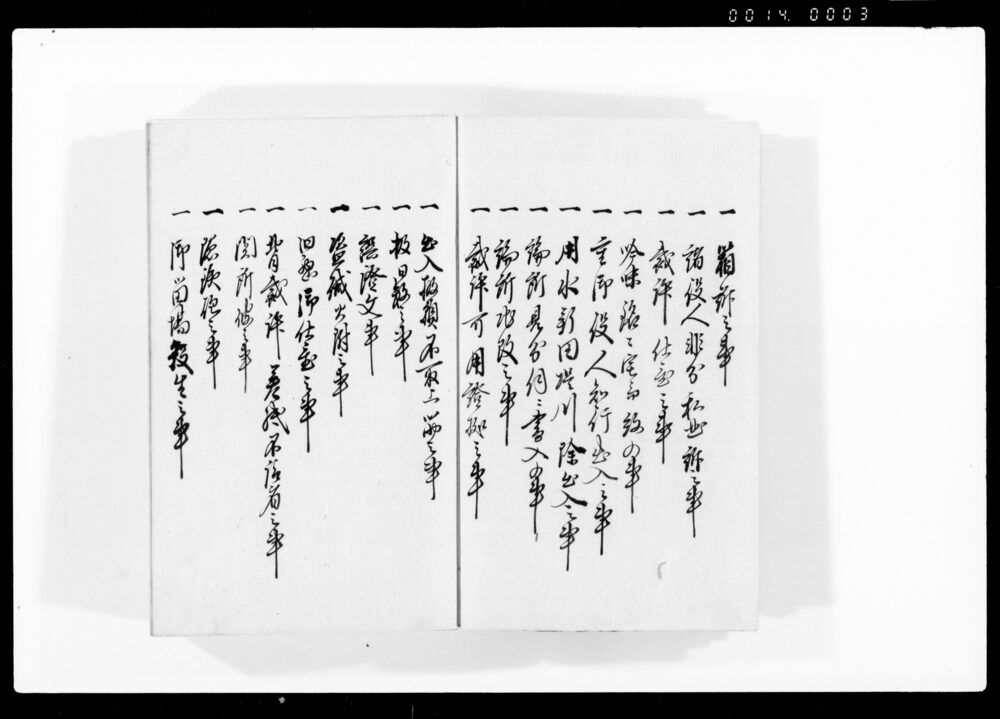 0014. 0003
一 箱訴之事
一 諸役人非分私曲訴之事
一 裁許仕直之事
一 吟味銘々宅ニ而致候事
一 重御役人知行出入之事
一 用水新田堤川除出入之事
一 論所見分伺ニ書入候事
一 論所地改之事
一 裁許可用證拠之事
一 出入扱願不取上品之事
一 扱日数之事
一 誤證文事
一 盗賊火附之事
一 旧悪御仕置之事
一 背裁許差紙不請者之事
一 関所之事
一 隠鉄炮之事
一 御留場殺生之事